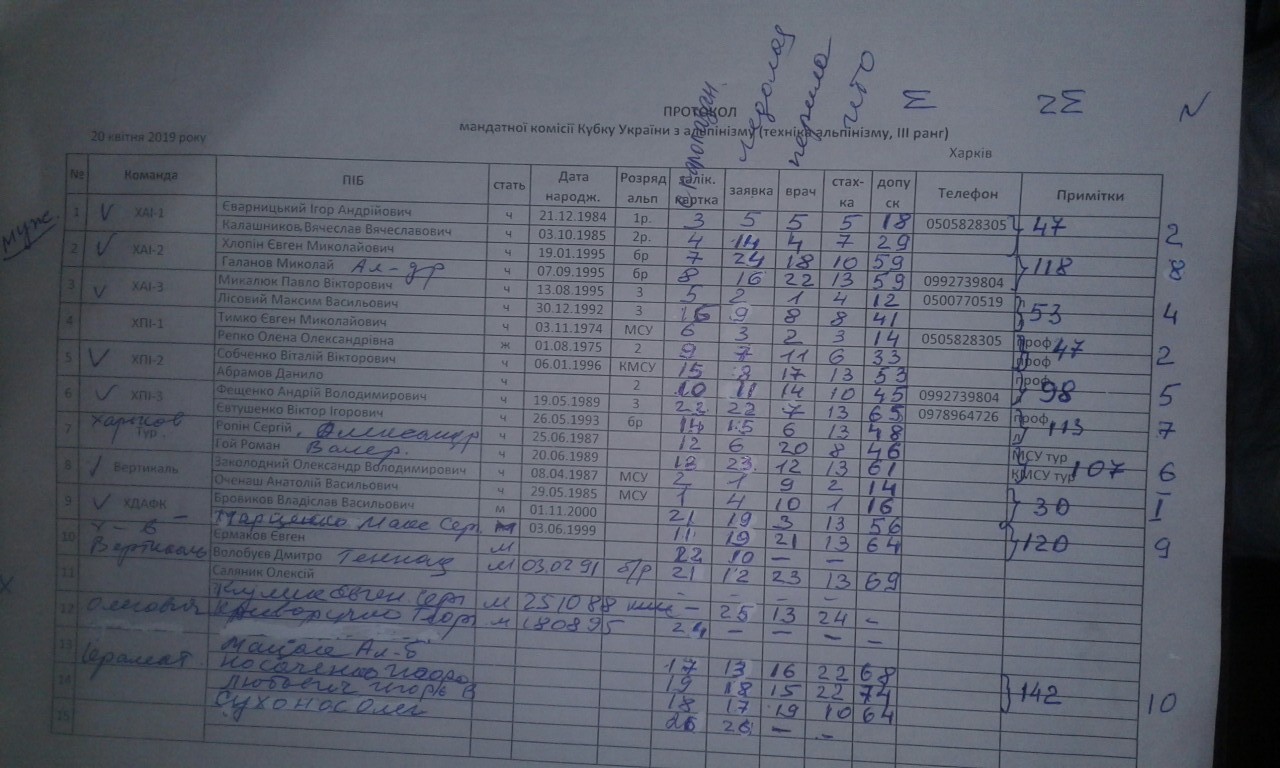 ледолаз
перила
Σ 2Σ
ПРОТОКОЛ
20 квітня 2019 року
мандатної комісії Кубку України з альпінізму (техніка альпінізму, ІІІ ранг)
Харків
№ Команда ПІБ стать Дата народж. Розряд альп залік. картка заявка врач стах-ка допуск Телефон Примітки
муж.
1 ХАІ-1 Єварницький Ігор Андрійович ч 21.12.1984 1р. 3 5 5 5 18 0505828305 47 2
Калашников Вячеслав Вячеславович ч 03.10.1985 2р. 4 14 4 7 29
2 ХАІ-2 Хлопін Євген Миколайович ч 19.01.1995 бр 7 24 18 10 59 118 8
Галанов Миколай Ал-др ч 07.09.1995 бр 8 16 22 13 59 0992739804
3 ХАІ-3 Микалюк Павло Вікторович ч 13.08.1995 3 5 2 1 4 12 0500770519 53 4
Лісовий Максим Васильович ч 30.12.1992 3 16 9 8 8 41
4 ХПІ-1 Тимко Євген Миколайович ч 03.11.1974 МСУ 6 3 2 3 14 0505828305 проф 47 2
Репко Олена Олександрівна ж 01.08.1975 2 9 7 11 6 33 проф
5 ХПІ-2 Собченко Віталій Вікторович ч 06.01.1996 КМСУ 15 8 17 13 53 проф 98 5
Абрамов Данило ч 2 10 11 14 10 45 0992739804
6 ХПІ-3 Фещенко Андрій Володимирович ч 19.05.1989 3 22 22 7 13 65 0978964726 проф 113 7
Євтушенко Віктор Ігорович ч 26.05.1993 бр 14 15 6 13 48
7 Харьков Тур. Ропін Сергій Александр ч 25.06.1987 12 6 20 8 46 МСУ тур 107 6
Гой Роман Валер. ч 20.06.1989 13 23 12 13 61 КМСУ тур
8 Вертикаль Заколодний Олександр Володимирович ч 08.04.1987 МСУ 2 1 9 2 14 30 I
Оченаш Анатолій Васильович ч 29.05.1985 МСУ 1 4 10 1 16
9 ХДАФК Бровиков Владіслав Васильович м 01.11.2000 21 19 3 13 56 120 9
Марценко Макс Сер. м 03.06.1999 11 19 21 13 64
10 Х-в - Вертикаль Єрмаков Євген м 22 10 – –
Волобуєв Дмитро Геннад м 030291 б/р 21 12 23 13 69
11 Саляник Олексій - - - -
Сер м 251088 – 25 13 24 -
12 Игорь м 180895 24 – – – –
13 Ал-б 17 13 16 22 68
Носаченко 19 18 15 22 74 142 10
14 Игорь В 18 17 19 10 64
Сухонос Олег 26 26 – -
15